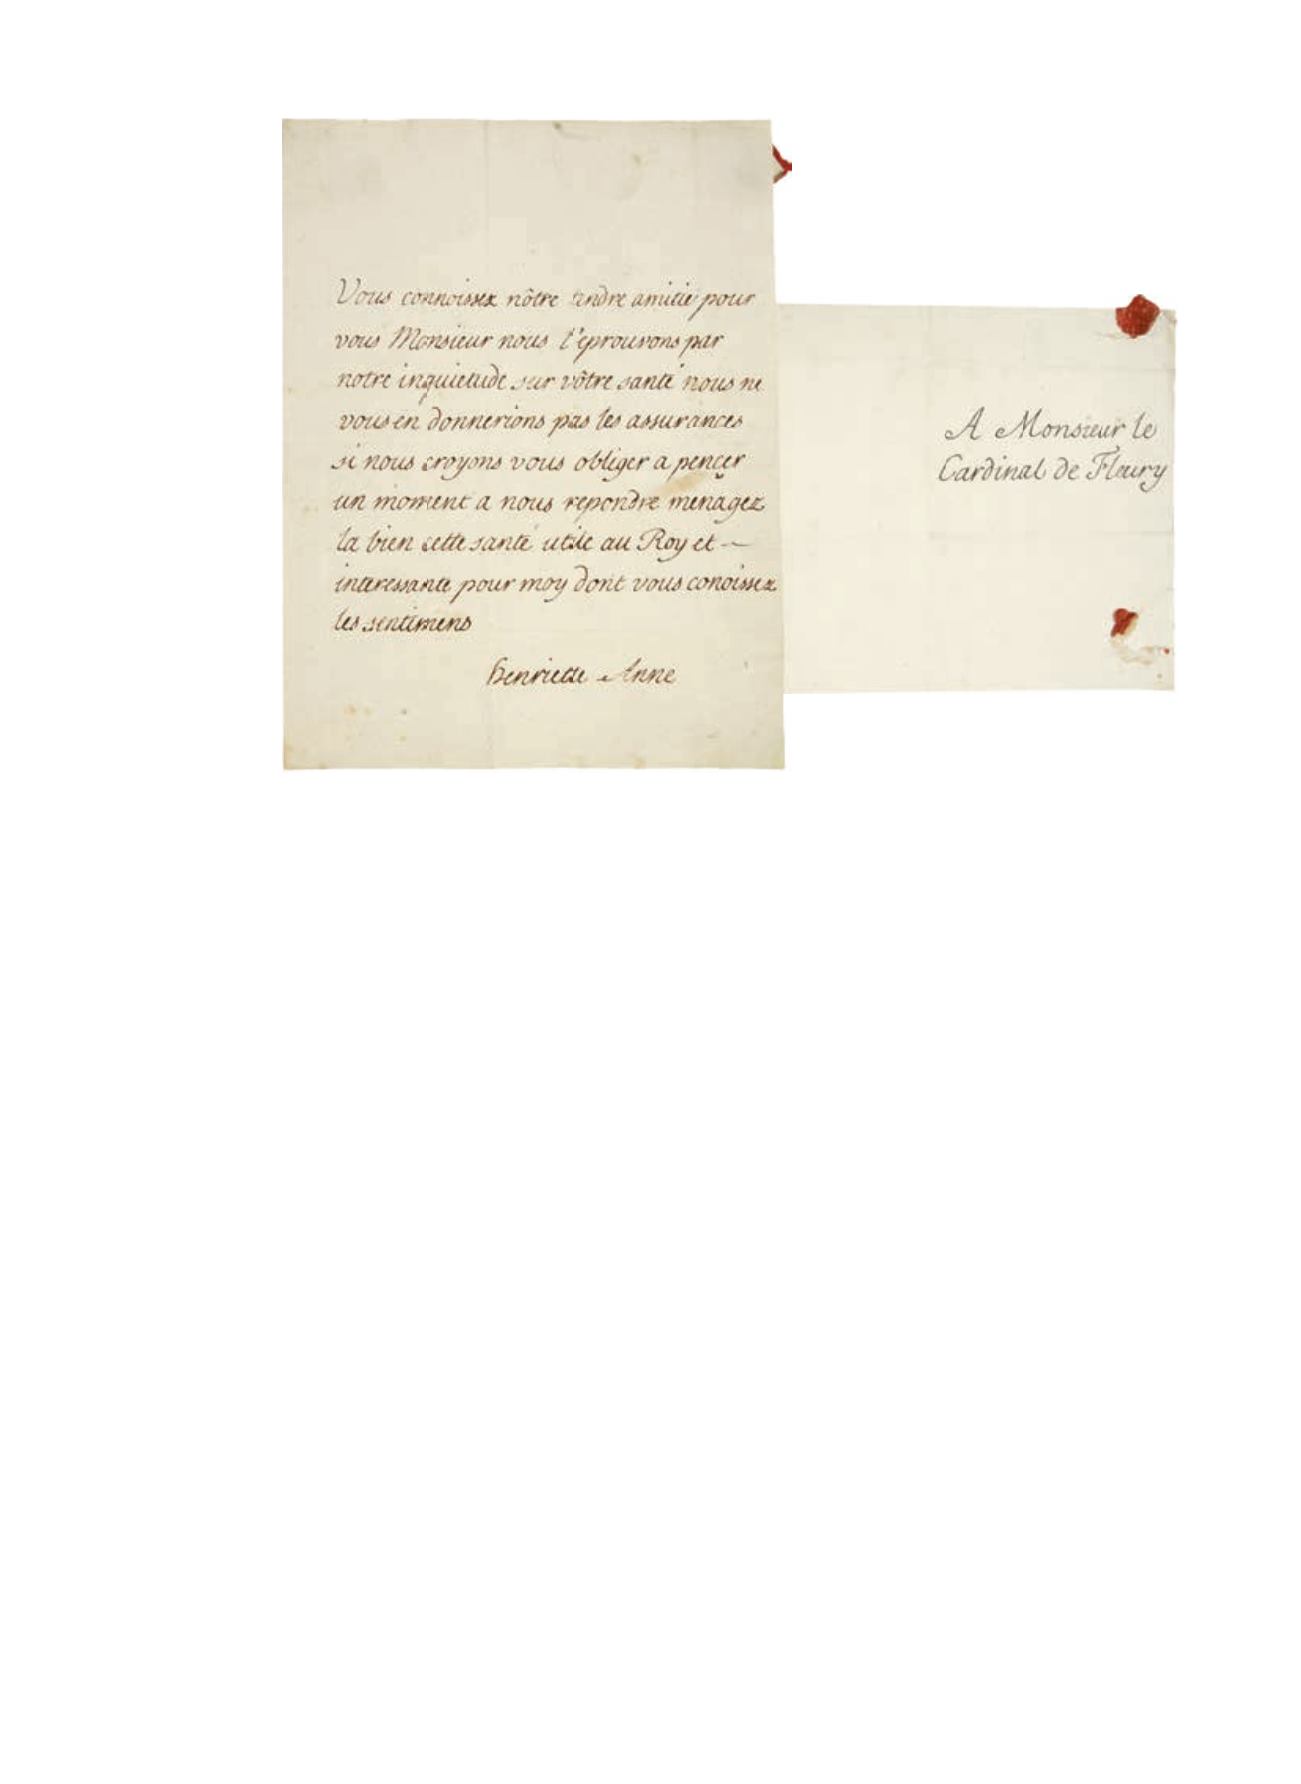 Vous connoissez nôtre tendre amitié pour
vous Monsieur nous l'eprouvons par
notre inquietude sur vôtre santé nous ne
vous en donnerions pas les assurances
si nous croyons vous obliger a pençer
un moment a nous repondre menagez
la bien cette santé utile au Roy et —
interessante pour moy dont vous conoissez
les sentimens
henriette Anne
A Monsieur le
Cardinal de Fleury